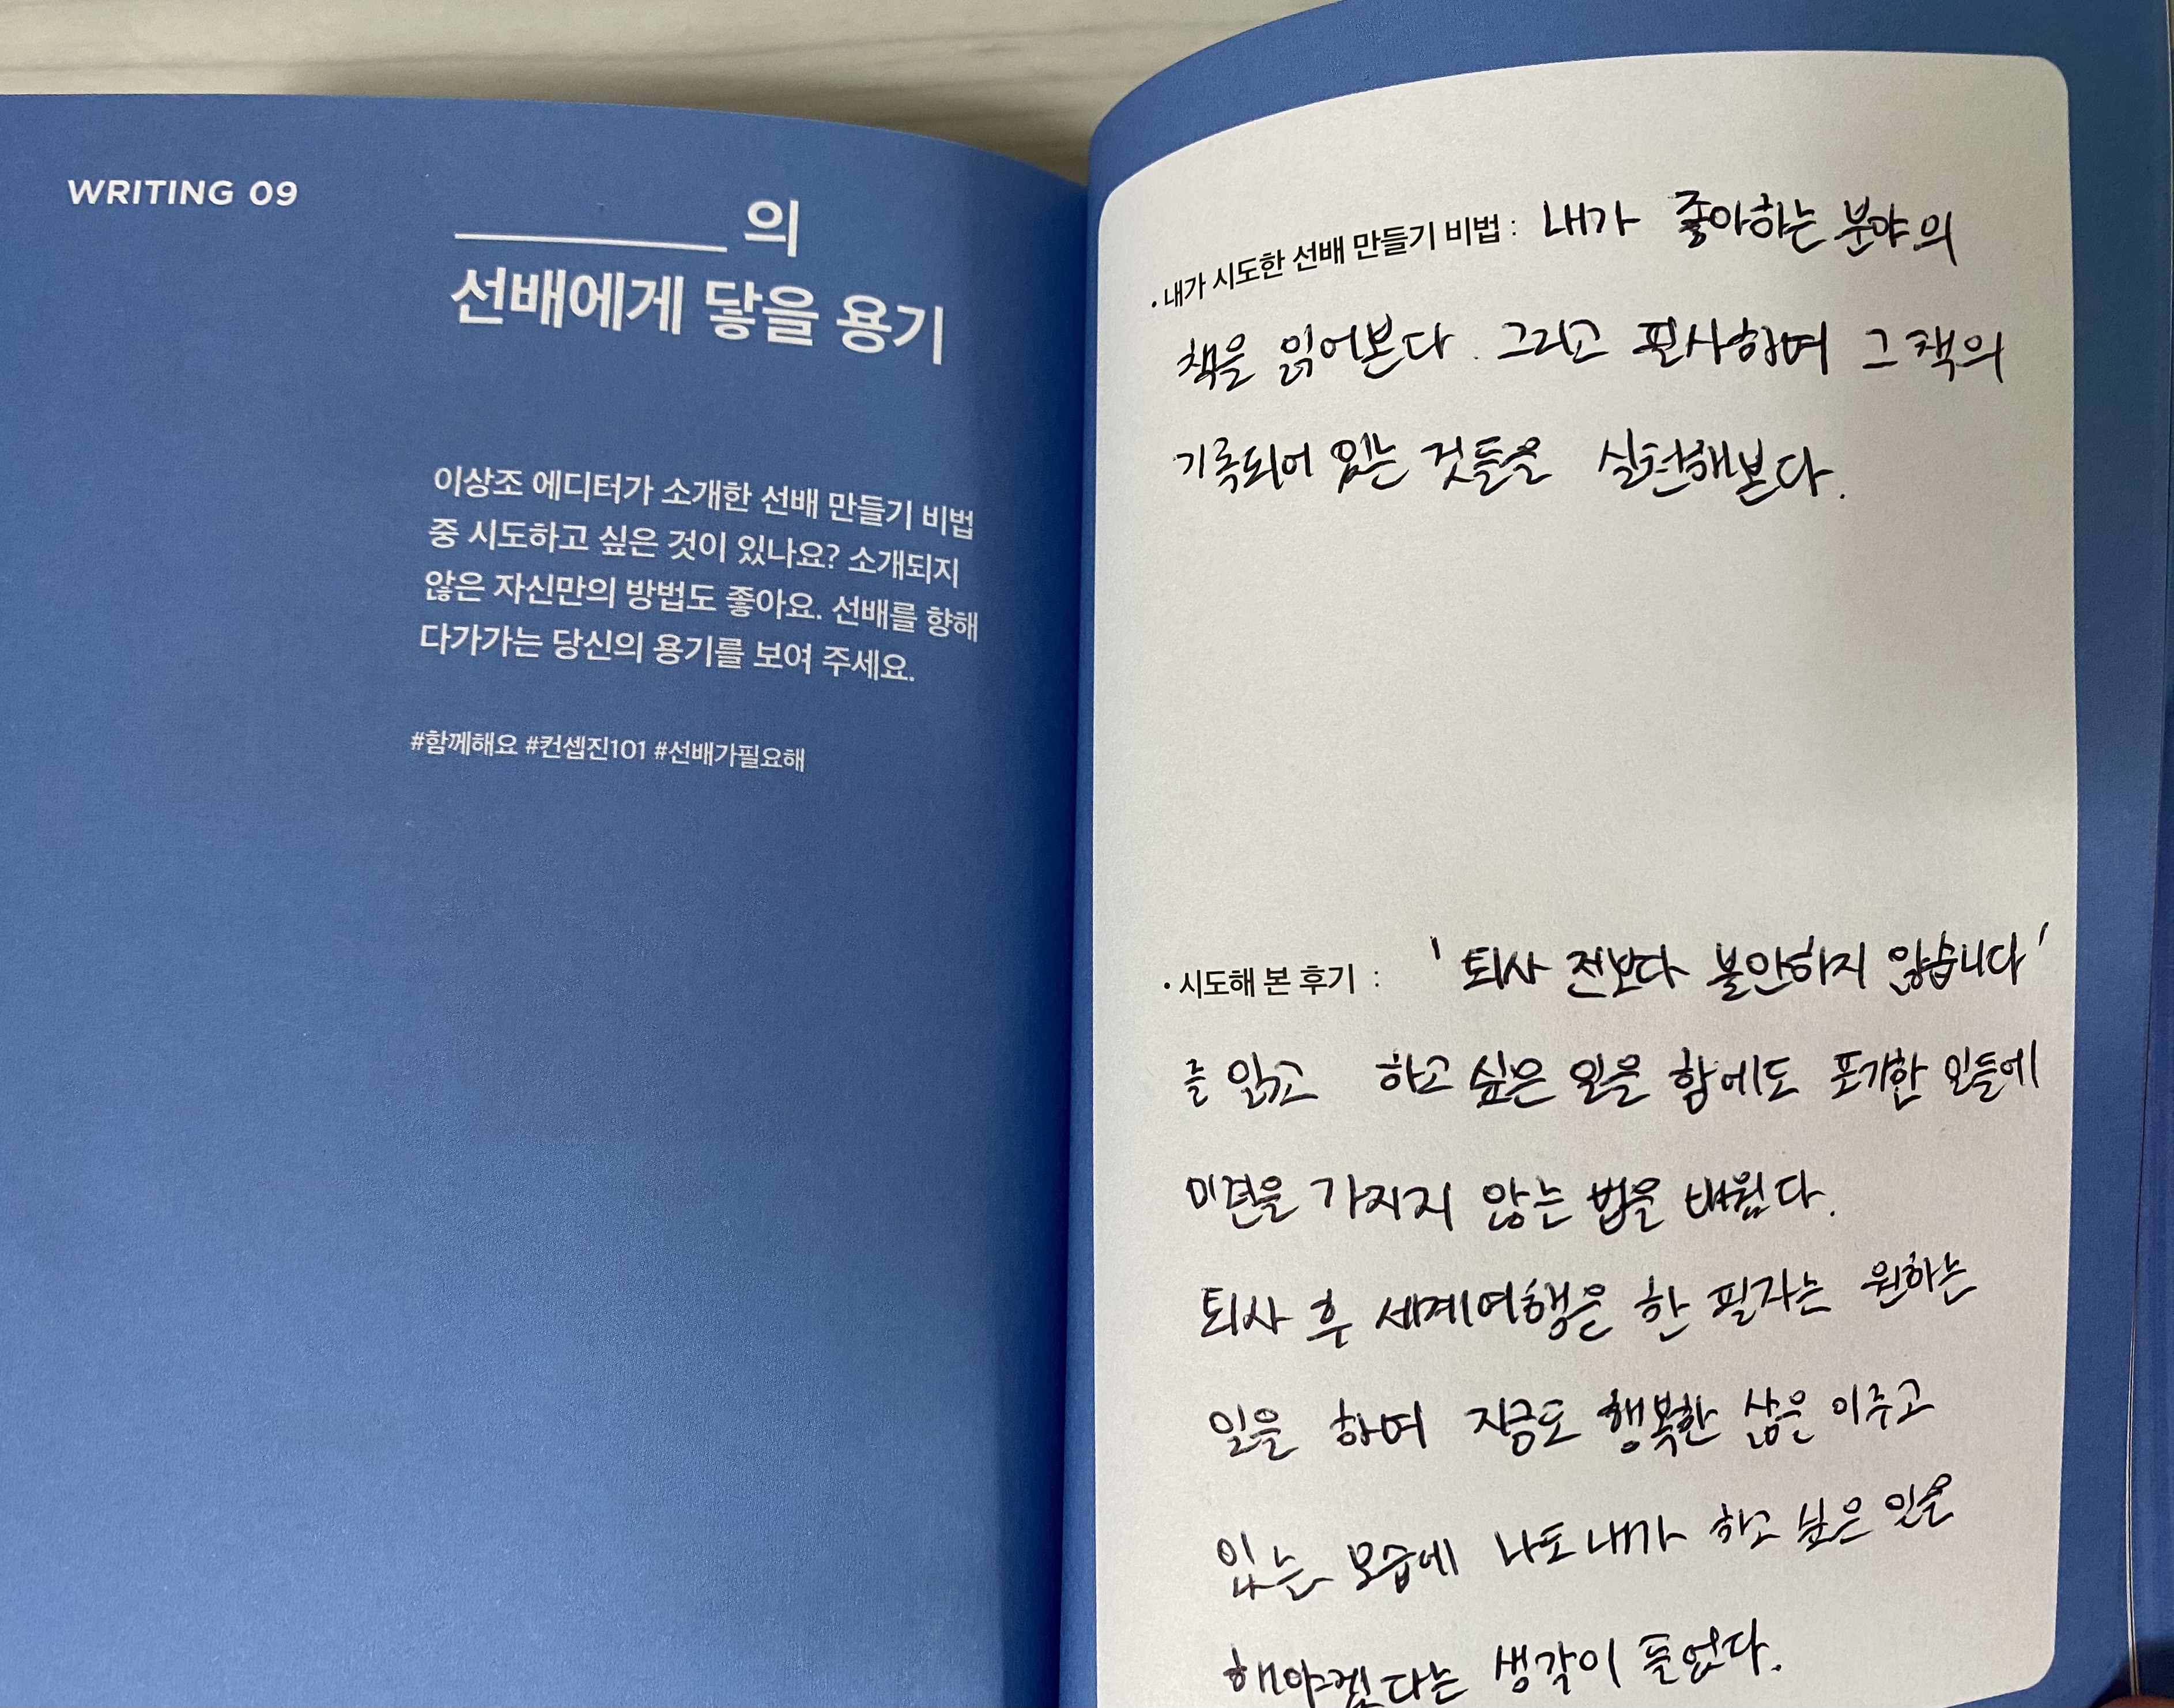 WRITING 09
________의
선배에게 닿을 용기
이상조 에디터가 소개한 선배 만들기 비법
중 시도하고 싶은 것이 있나요? 소개되지
않은 자신만의 방법도 좋아요. 선배를 향해
다가가는 당신의 용기를 보여 주세요.
#함께해요 #컨셉진101 #선배가필요해
• 내가 시도한 선배 만들기 비법 : 내가 좋아하는 분야의
책을 읽어본다. 그리고 필사하며 그 책의
기록되어 있는 것들을 실천해본다.
• 시도해 본 후기 : '퇴사 전보다 불안하지 않습니다'
를 읽고 하고 싶은 일을 함에도 포기한 일들에
미련을 가지지 않는 법을 배웠다.
퇴사 후 세계여행을 한 필자는 원하는
일을 하며 지금도 행복한 삶은 이루고
있는 모습에 나도 내가 하고 싶은 일을
해야겠다는 생각이 들었다.